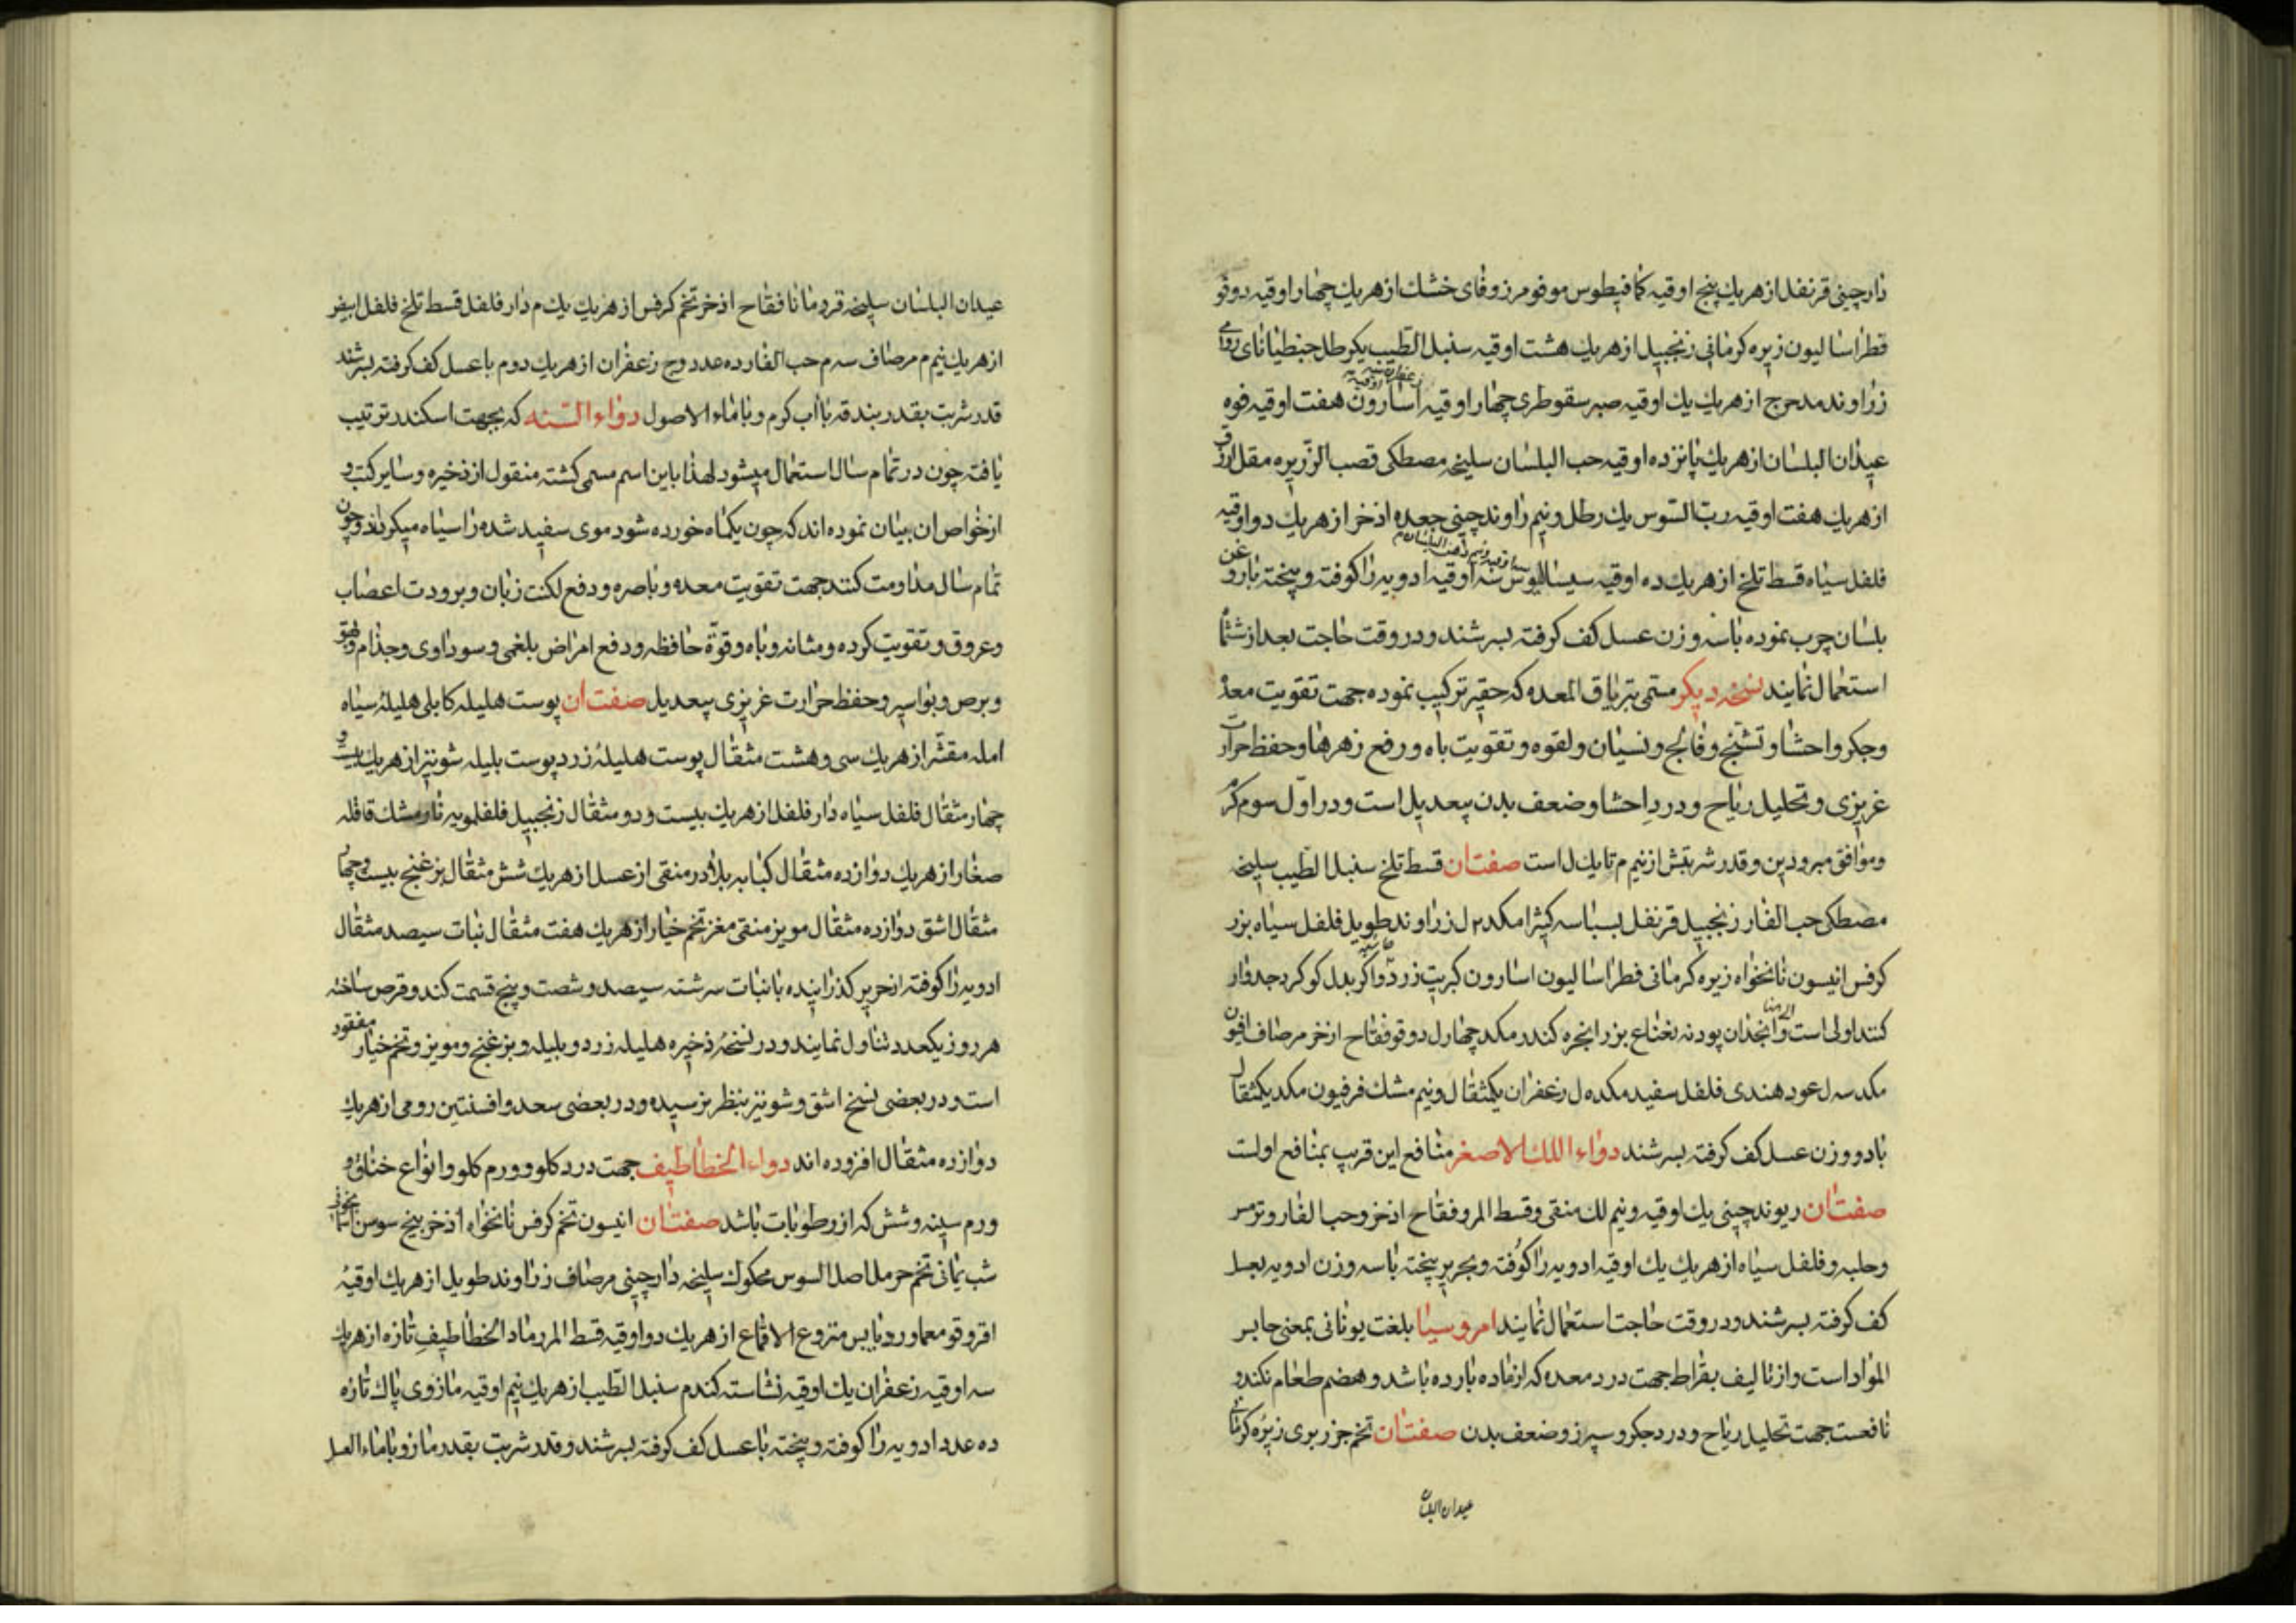 دارچینی قرنفل از هریك پنج اوقیه کمافیطوس مو فو مر زوفای خشك از هریك چهار اوقیه دوقو
فطراسالیون زیره کرمانی زنجبیل از هریك هشت اوقیه سنبل الطیب یکرطل جنطیانای رومی
زراوند مدحرج از هریك یك اوقیه صبر سقوطری چهار اوقیه اسارون هفت اوقیه فوه
عیدان البلسان از هریك پانزده اوقیه حب البلسان سلیخه مصطکی قصب الزریره مقل ازرق
از هریك هفت اوقیه ربّ السّوس یك رطل و نیم راوند چینی جعده اذخر از هریك دو اوقیه
فلفل سیاه قسط تلخ از هریك ده اوقیه سیسالیوس سه اوقیه ادویه را کوفته و بیخته با روغن
بلسان چرب نموده با سه وزن عسل کف کرفته بسرشند و در وقت حاجت بعد از ششماه
استعمال نمایند نسخه دیکر مسمی بتریاق المعده که حقیر ترکیب نموده جهت تقویت معده
و جکر و احشا و تشنج و فالج و نسیان و لقوه و تقویت باه و رفع زهرها و حفظ حرارت
غریزی و تحلیل ریاح و درد احشا و ضعف بدن بیعدیل است و در اول سوم کرم
و موافق مبرودین و قدر شربتش از نیم م تا یك ل است صفت ان قسط تلخ سنبل الطیب سلیخه
مصطکی حب الغار زنجبیل قرنفل بسباسه کثیرا مکد ۲ ل زراوند طویل فلفل سیاه بزر
کرفس انیسون نانخواه زیره کرمانی فطراسالیون اسارون کبریت زرد و اکر بدل کوکرد جدوار
کنند اولی است و انجذان پودنه نعناع بزر انجره کندر مکد چهار ل دوقو فقاح اذخر مر صاف افیون
مکد سه ل عود هندی فلفل سفید مکد ده ل زعفران یکمثقال و نیم مشك فرفیون مکد یکمثقال
با دو وزن عسل کف کرفته بسرشند دواء اللك الاصغر منافع این قریب بمنافع اولست
صفت ان ریوند چینی یك اوقیه و نیم لك منقی و قسط المر و فقاح اذخر و حب الغار و ترمس
و حلبه و فلفل سیاه از هریك یك اوقیه ادویه را کوفته و بحریر بیخته با سه وزن ادویه بعسل
کف کرفته بسرشند و در وقت حاجت استعمال نمایند امروسیا بلغت یونانی بمعنی جابر
المواد است و از تالیف بقراط جهت درد معده که از ماده بارده باشد و هضم طعام نکند و
نافعست جهت تحلیل ریاح و درد جکر و سپرز و ضعف بدن صفت ان تخم جزر بری زیره کرمانی
عیدان البلسان
عیدان البلسان سلیخه قردمانا فقاح اذخر تخم کرفس از هریك یك م دار فلفل قسط تلخ فلفل ابیض
از هریك نیم م مر صاف سه م حب الغار ده عدد وج زعفران از هریك دو م با عسل کف کرفته بسرشند
قدر شربت بقدر بندقه با اب کرم و با ماء الاصول دواء السّنه که بجهت اسکندر ترتیب
یافته چون در تمام سال استعمال میشود لهذا باین اسم مسمی کشته منقول از ذخیره و سایر کتب و
از خواص ان بیان نموده اند که چون یکماه خورده شود موی سفید شده را سیاه میکرداند و چون
تمام سال مداومت کنند جهت تقویت معده و باصره و دفع لکنت زبان و برودت اعصاب
و عروق و تقویت کرده و مثانه و باه و قوّة حافظه و دفع امراض بلغمی و سوداوی و جذام و بهق
و برص و بواسیر و حفظ حرارت غریزی بیعدیل صفت ان پوست هلیله کابلی هلیلهٔ سیاه
امله مقشّر از هریك سی و هشت مثقال پوست هلیلهٔ زرد پوست بلیله شونیز از هریك بیست و
چهار مثقال فلفل سیاه دار فلفل از هریك بیست و دو مثقال زنجبیل فلفلمویه نارمشك قاقله
صغار از هریك دوازده مثقال کبابه بلادر منقی از عسل از هریك شش مثقال بزغنج بیست و چهار
مثقال اشق دوازده مثقال مویز منقی مغز تخم خیار از هریك هفت مثقال نبات سیصد مثقال
ادویه را کوفته از حریر کذرانیده با نبات سرشته سیصد و شصت و پنج قسمت کند و قرص ساخته
هر روز یکعدد تناول نمایند و در نسخهٔ ذخیره هلیله زرد و بلیله و بزغنج و مویز و تخم خیار مفقود
است و در بعضی نسخ اشق و شونیز بنظر نرسیده و در بعضی سعد و افسنتین رومی از هریك
دوازده مثقال افزوده اند دواء الخطاطیف جهت درد کلو و ورم کلو و انواع خناق و
ورم سینه و شش که از رطوبات باشد صفت ان انیسون تخم کرفس نانخواه اذخر بیخ سوسن اسمانجونی
شب یمانی تخم حرمل اصل السوس محکوك سلیخه دارچینی مر صاف زراوند طویل از هریك اوقیهٔ
اقروقومعما ورد یابس منزوع الاقماع از هریك دو اوقیه قسط المر رماد الخطاطیف تازه از هریك
سه اوقیه زعفران یك اوقیه نشاسته کندم سنبل الطیب از هریك نیم اوقیه مازوی پاك تازه
ده عدد ادویه را کوفته و بیخته با عسل کف کرفته بسرشند و قدر شربت بقدر مازو با ماء العسل